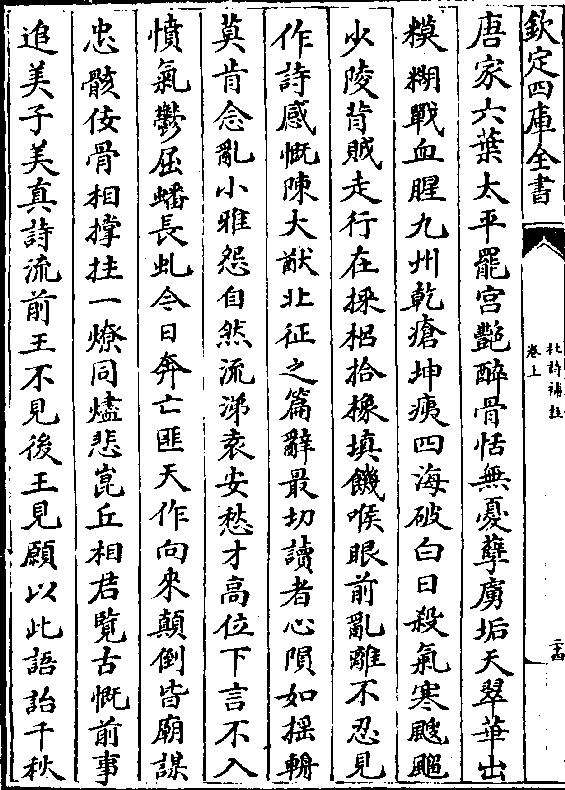 欽定四庫全書
杜詩補註
卷上
二十四
唐家六葉太平罷宮艷醉骨恬無憂孽虜垢天翠華出
糢糊戰血腥九州乾瘡坤痍四海破白日殺氣寒飕飗
少陵背賊走行在採梠拾橡填饑喉眼前亂離不忍見
作詩感慨陳大猷北征之篇辭最切讀者心隕如揺輈
莫肯念亂小雅怨自然流涕袁安愁才高位下言不入
憤氣鬱屈蟠長虬今日奔亡匪天作向來顛倒皆廟謀
忠骸佞骨相撑拄一燎同燼悲崑丘相君覽古慨前事
追美子美真詩流前王不見後王見願以此語詒千秋